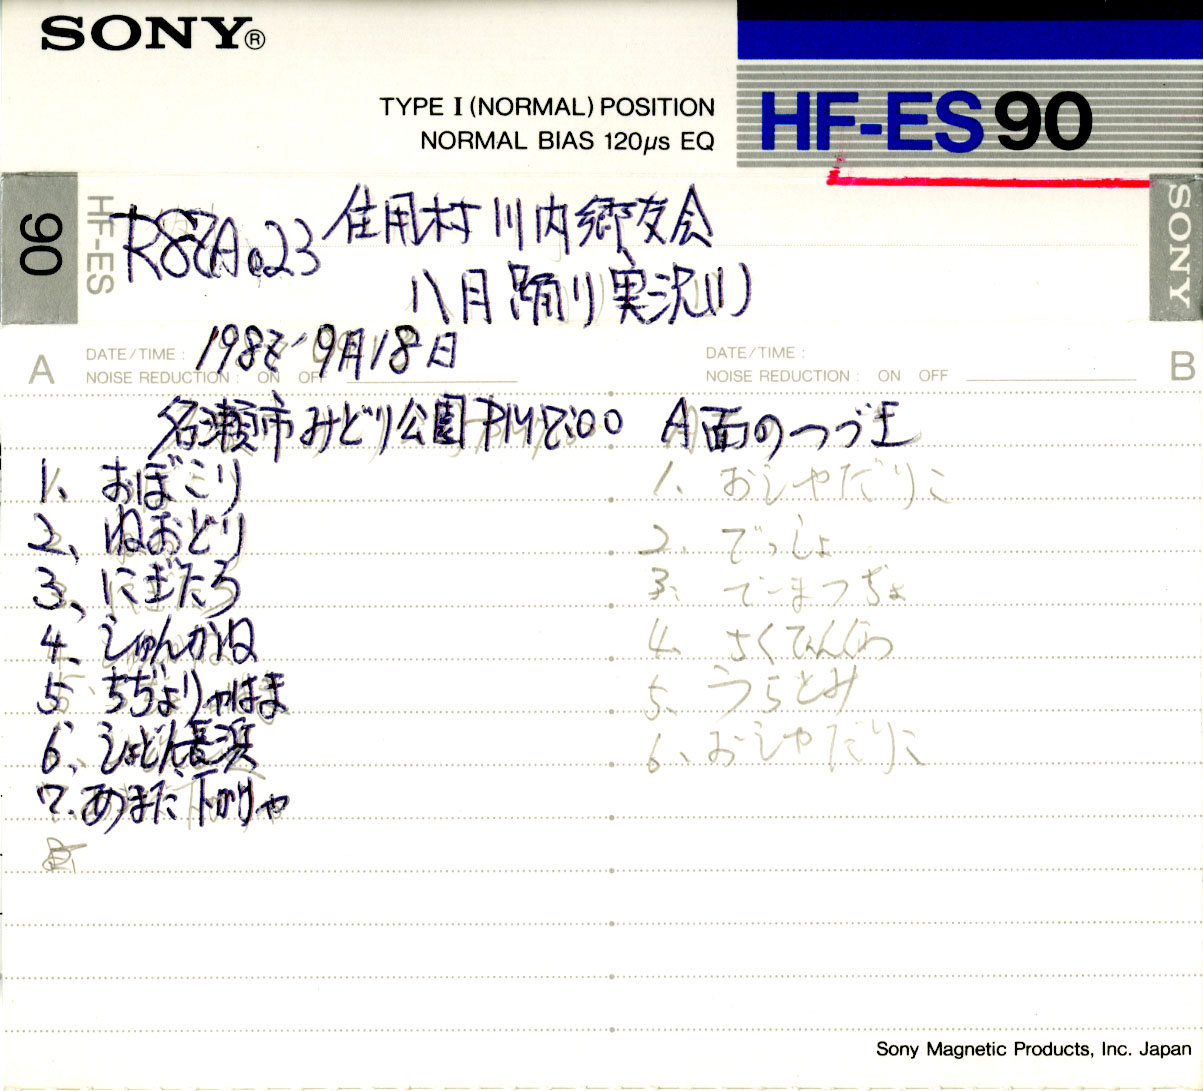 SONY®
TYPE I (NORMAL) POSITION
NORMAL BIAS 120µs EQ
HF-ES 90
90
HF-ES
SONY
住用村川内郷友会
八月踊り実況(1)
A
DATE/TIME :
NOISE REDUCTION : ON OFF
9月18日
DATE/TIME :
NOISE REDUCTION : ON OFF
B
名瀬市みどり公園 PM7:00
1、おぼこり
2、ねおどり
3、にぎたろ
4、しゅんかね
5、ちぢょりゃはま
6、しょどん長浜
7、あまだ下かりゃ
A面のつづき
1、おしゃだりこ
2、でっしょ
3、でーまつぢょ
4、さくてんぐわ
5、うらとみ
6、おしゃだりこ
Sony Magnetic Products, Inc. Japan